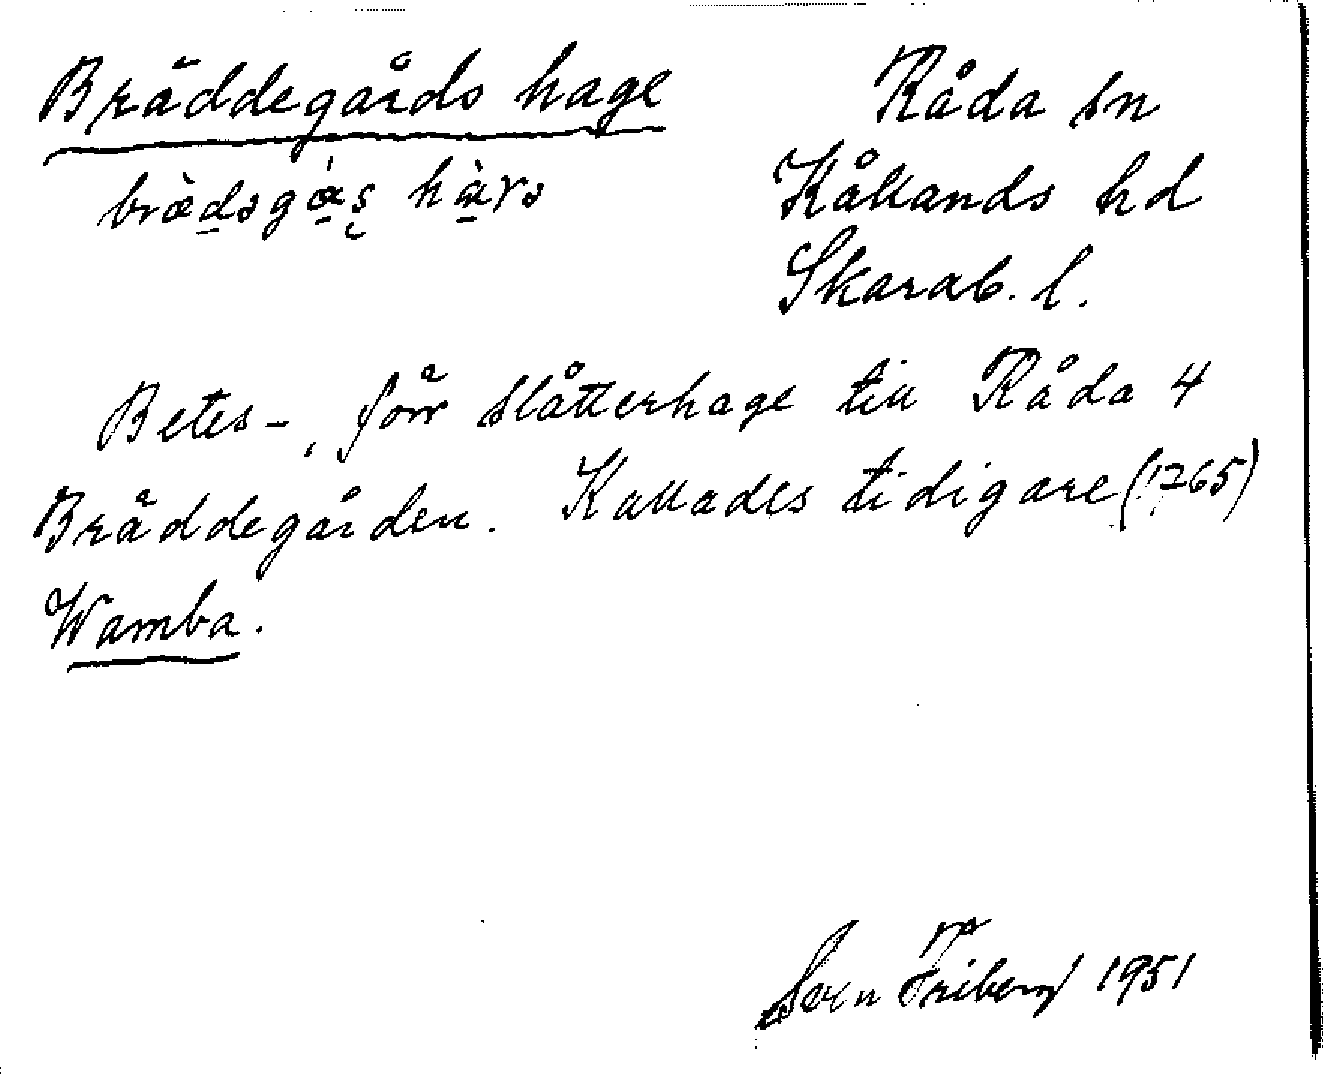 Bräddegårds hage
Råda sn
Kållands hd
Skarab. l.
Betes-, förr slåtterhage till Råda 4
Bräddegården. Kallades tidigare (1765)
Wamba.
Sven Friberg 1951